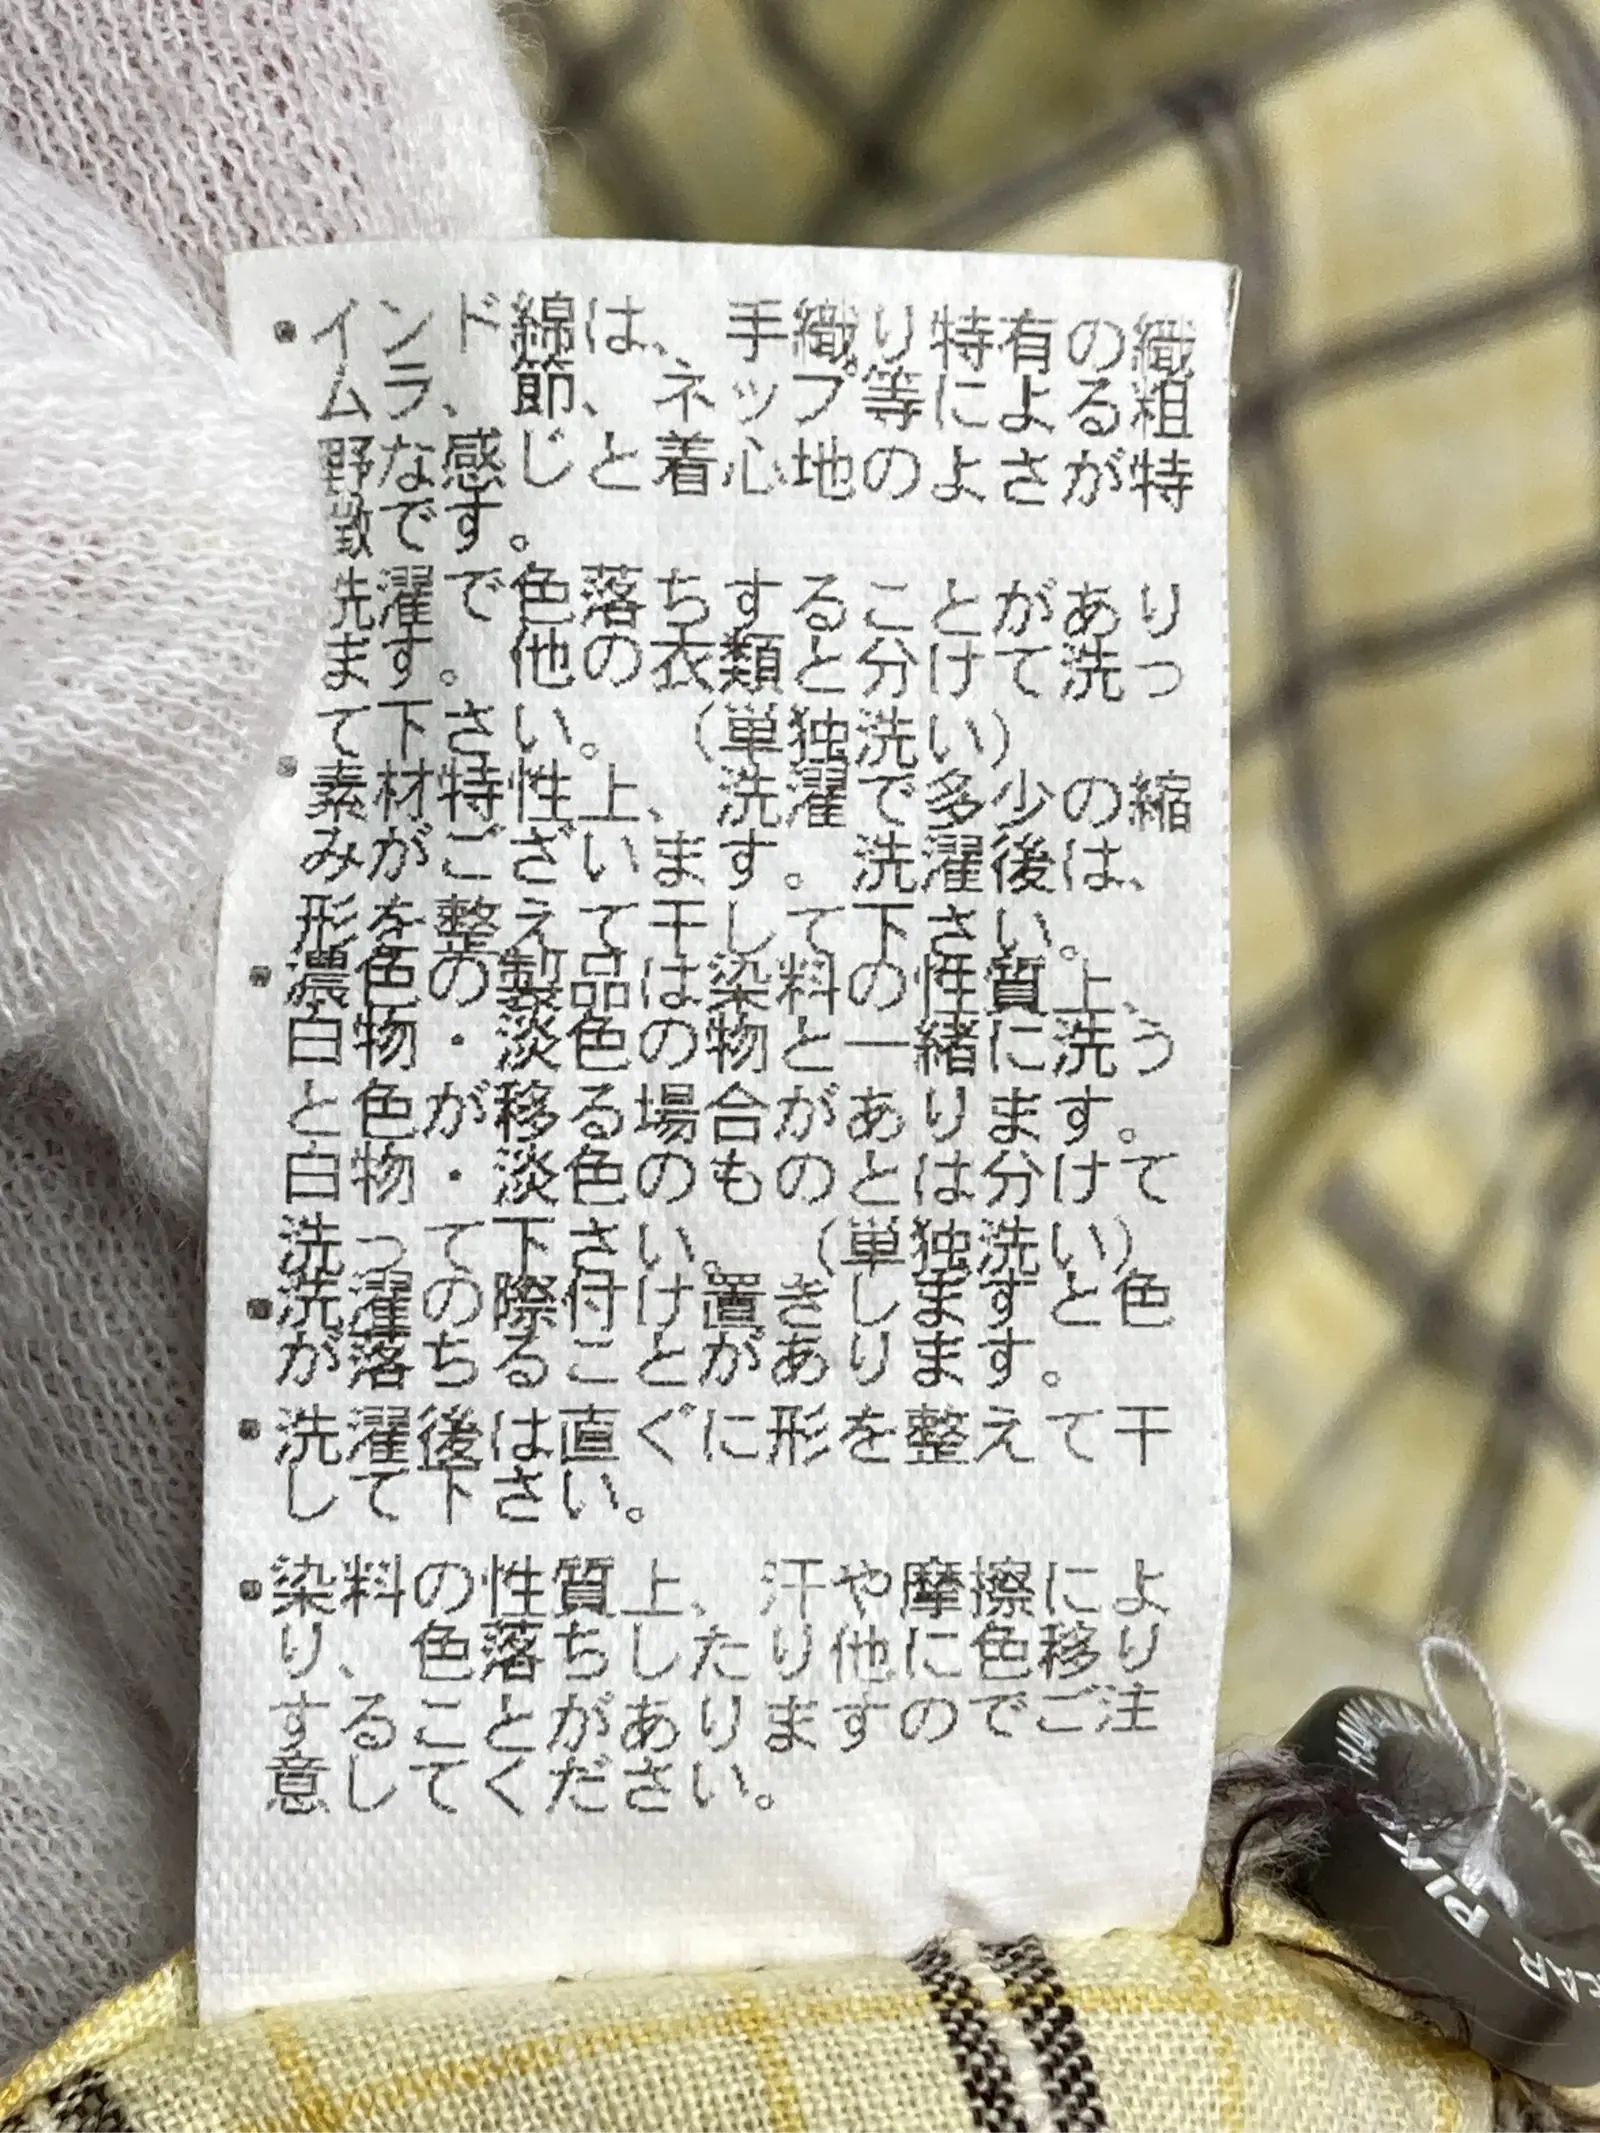 ・インド綿は、手織り特有の織
ムラ、節、ネップ等による粗
野な感じと着心地のよさが特
徴です。
洗濯で色落ちすることがあり
ます。他の衣類と分けて洗っ
て下さい。(単独洗い)
・素材特性上、洗濯で多少の縮
みがございます。洗濯後は、
形を整えて干して下さい。
・濃色の製品は染料の性質上、
白物・淡色の物と一緒に洗う
と色が移る場合があります。
白物・淡色のものとは分けて
洗って下さい。(単独洗い)
・洗濯の際付け置きしますと色
が落ちることがあります。
・洗濯後は直ぐに形を整えて干
して下さい。
・染料の性質上、汗や摩擦によ
り、色落ちしたり他に色移り
することがありますのでご注
意してください。